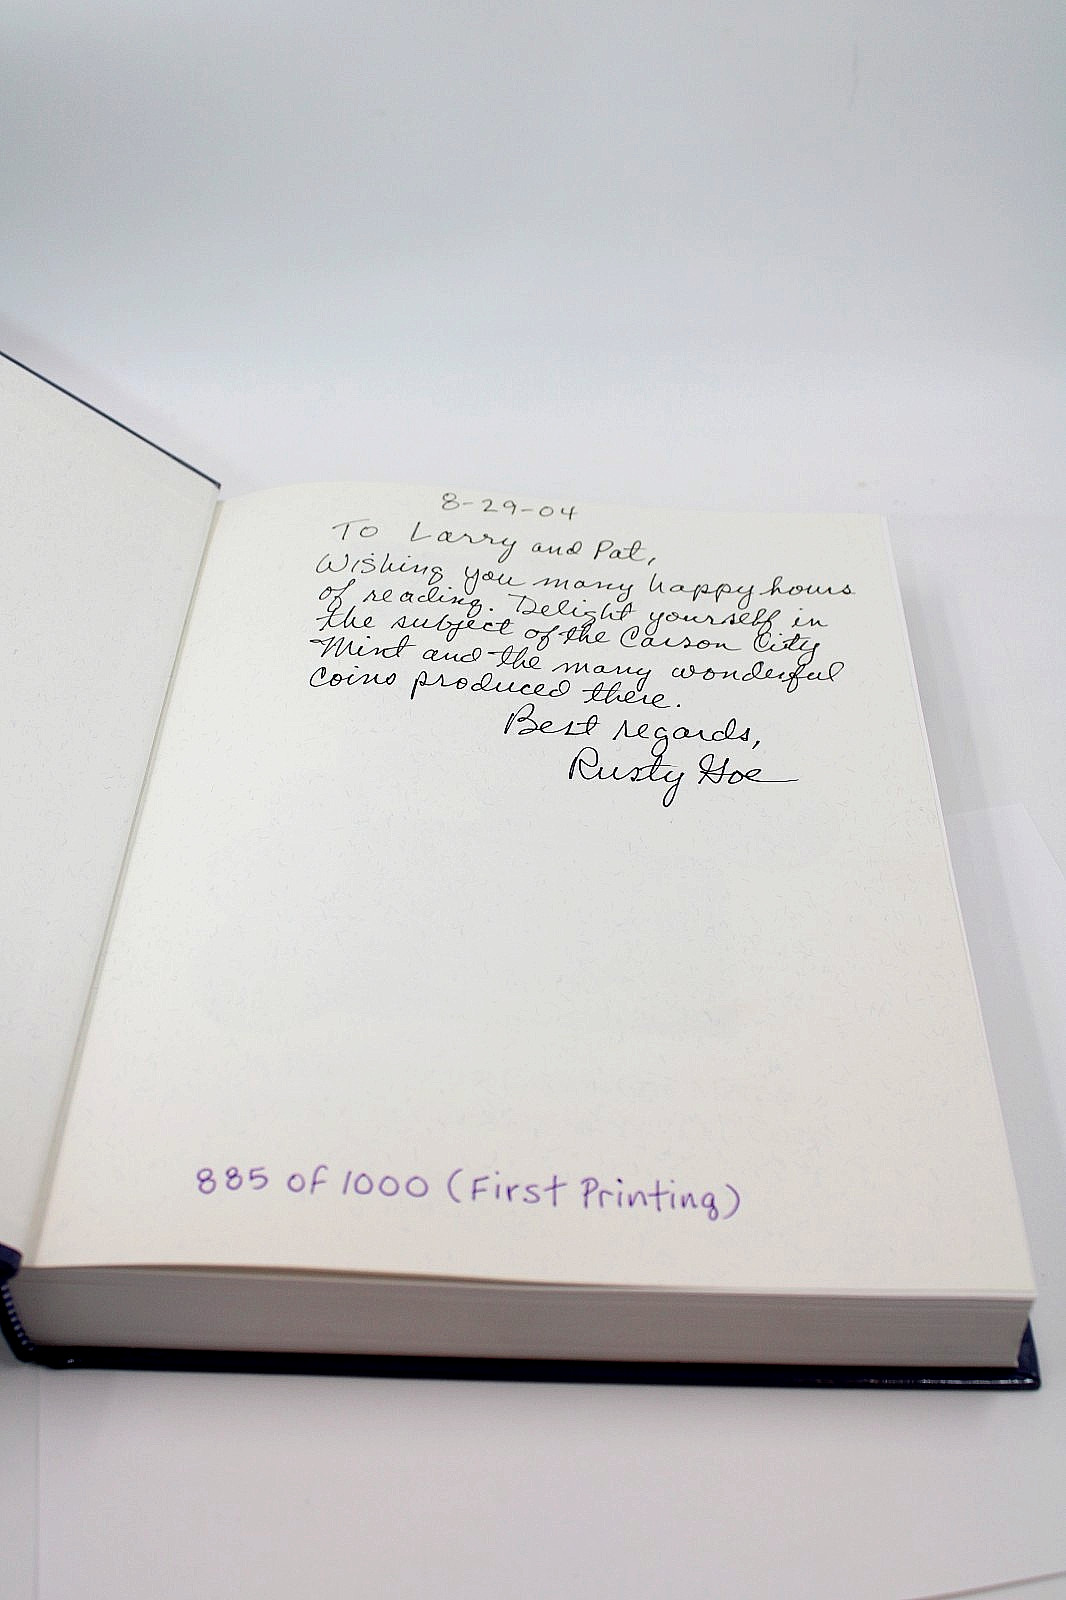 8-29-04
To Larry and Pat,
Wishing you many happy hours
of reading. Delight yourself in
the subject of the Carson City
Mint and the many wonderful
coins produced there.
Best regards,
Rusty Goe
885 of 1000 (First Printing)